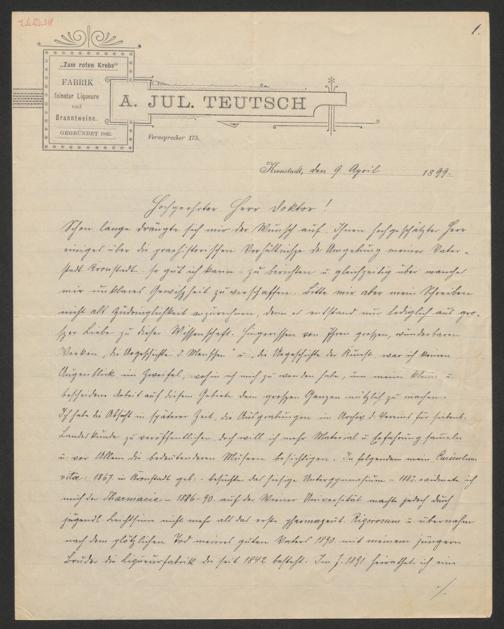 1.
„Zum roten Krebs“
FABRIK
feinster Liqueure
und
Branntweine.
GEGRÜNDET 1842.
A. JUL. TEUTSCH
Fernsprecher 173.
Kronstadt, den 9 April 1899.
Hochgeehrter Herr Doktor!
Schon lange drängte sich mir der Wunsch auf Ihnen hochgeschätzter Herr
einiges über die praehistorischen Verhältnisse der Umgebung meiner Vater-
stadt Kronstadt so gut ich kann zu berichten u gleichzeitig über manche
mir unklare Gewissheit zu verschaffen. Bitte mir aber mein Schreiben
nicht als Zudringlichkeit anzurechnen, denn es entstand nur lediglich aus gro-
sser Liebe zu dieser Wissenschaft. Hingerissen von Ihren grossen, wunderbaren
Werken, die Urgeschichte d Menschen u. die Urgeschichte der Kunst, war ich keinen
Augenblick im Zweifel, wohin ich mich zu wenden habe, um meine kleine u
bescheidene Arbeit auf diesem Gebiete dem grossen Ganzen nützlich zu machen.
Ich habe die Absicht in späterer Zeit, die Ausgrabungen im Archiv d. Vereins für siebenb.
Landeskunde zu veröffentlichen doch will ich mehr Material u Erfahrung sammeln
u vor Allem die bedeutenderen Museen besichtigen. Im folgendem mein Curiculum
vita. 1867 in Kronstadt geb. - besuchte das hiesige Untergymnasium - widmete ich
mich der Pharmacie - 1886-90 auf der Wiener Universität machte jedoch durch
jugendl. Leichtsinn nicht mehr als das erste pharmazeut. Rigorosum u übernahm
nach dem plötzlichen Tod meines guten Vaters 1890 mit meinem jüngern
Bruder die Liqueurfabrik die seit 1842 besteht. Im J. 1891 heirathete ich eine
./.